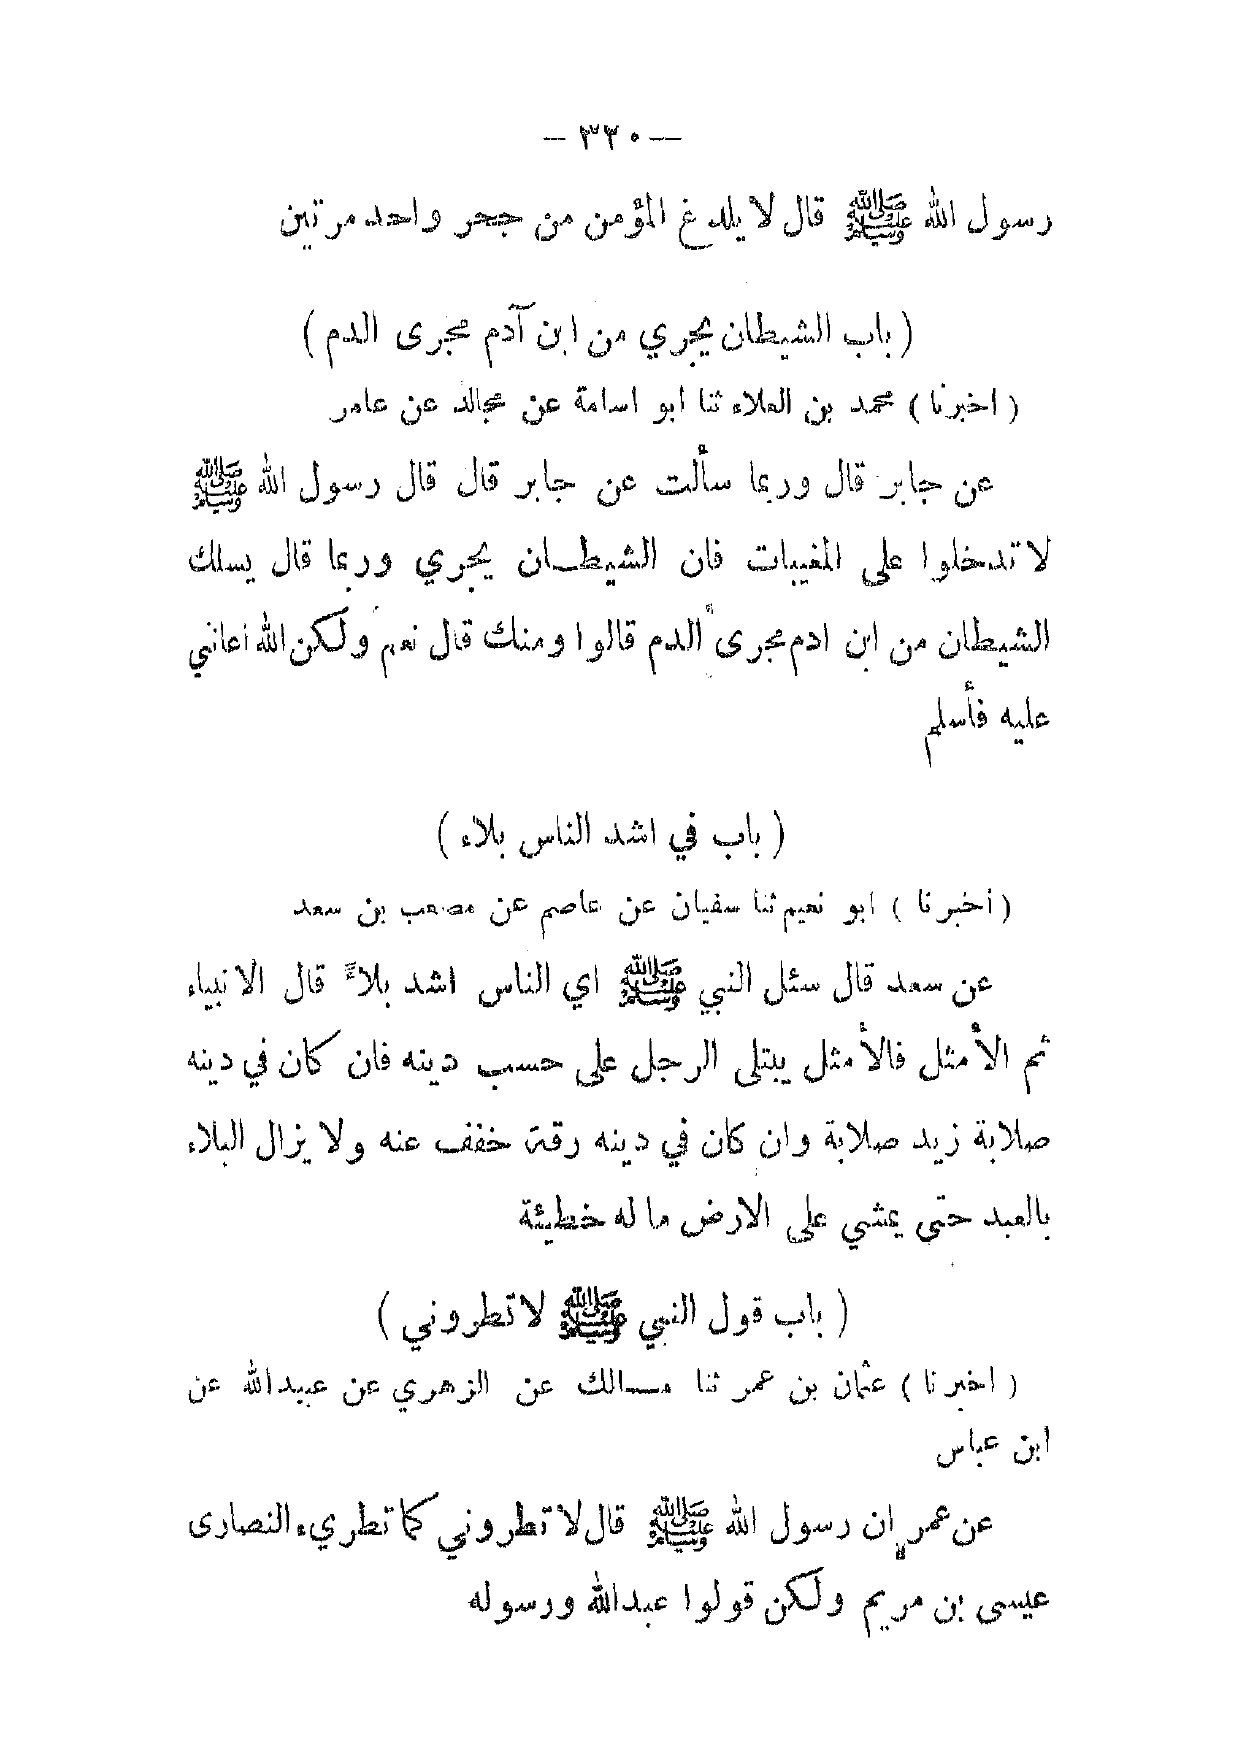 — ٣٢٠ —
رسول الله ﷺ قال لا يلدغ المؤمن من جحر واحد مرتين
( باب الشيطان يجري من ابن آدم مجرى الدم )
( اخبرنا ) محمد بن العلاء ثنا ابو اسامة عن مجالد عن عامر
عن جابر قال وربما سألت عن جابر قال قال رسول الله ﷺ
لا تدخلوا على المغيبات فان الشيطان يجري وربما قال يسلك
الشيطان من ابن ادم مجرى الدم قالوا ومنك قال نعم ولكن الله أعانني
عليه فأسلم
( باب في اشد الناس بلاء )
( أخبرنا ) ابو نعيم ثنا سفيان عن عاصم عن مصعب بن سعد
عن سعد قال سئل النبي ﷺ اي الناس اشد بلاءً قال الانبياء
ثم الأمثل فالأمثل يبتلى الرجل على حسب دينه فان كان في دينه
صلابة زيد صلابة وان كان في دينه رقة خفف عنه ولا يزال البلاء
بالعبد حتى يمشي على الارض ما له خطيئة
( باب قول النبي ﷺ لا تطروني )
( اخبرنا ) عثمان بن عمر ثنا مالك عن الزهري عن عبيدالله عن
ابن عباس
عن عمر ان رسول الله ﷺ قال لا تطروني كما تطريء النصارى
عيسى بن مريم ولكن قولوا عبدالله ورسوله